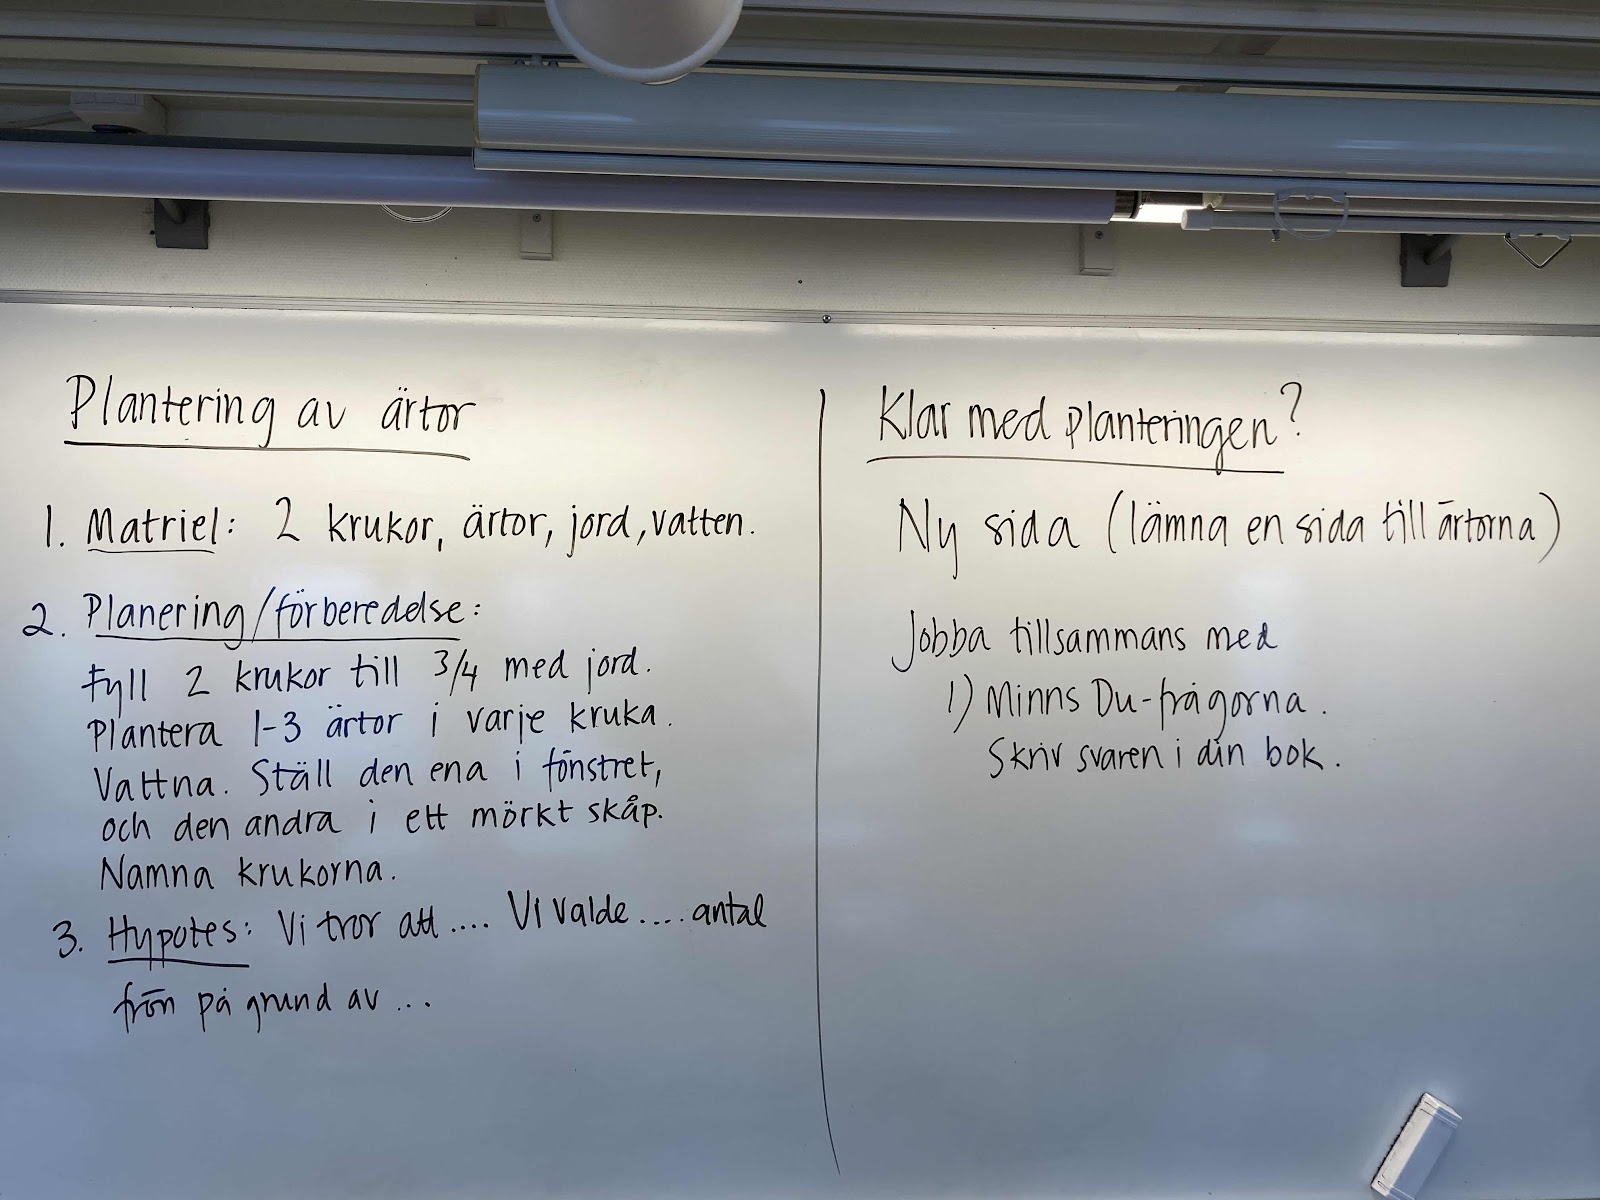 Plantering av ärtor
1. Matriel: 2 krukor, ärtor, jord, vatten.
2. Planering/förberedelse:
Fyll 2 krukor till 3/4 med jord.
Plantera 1-3 ärtor i varje kruka.
Vattna. Ställ den ena i fönstret,
och den andra i ett mörkt skåp.
Namna krukorna.
3. Hypotes: Vi tror att .... Vi valde .... antal
frön på grund av ...
Klar med planteringen?
Ny sida (lämna en sida till ärtorna)
Jobba tillsammans med
1) Minns Du-frågorna.
Skriv svaren i din bok.